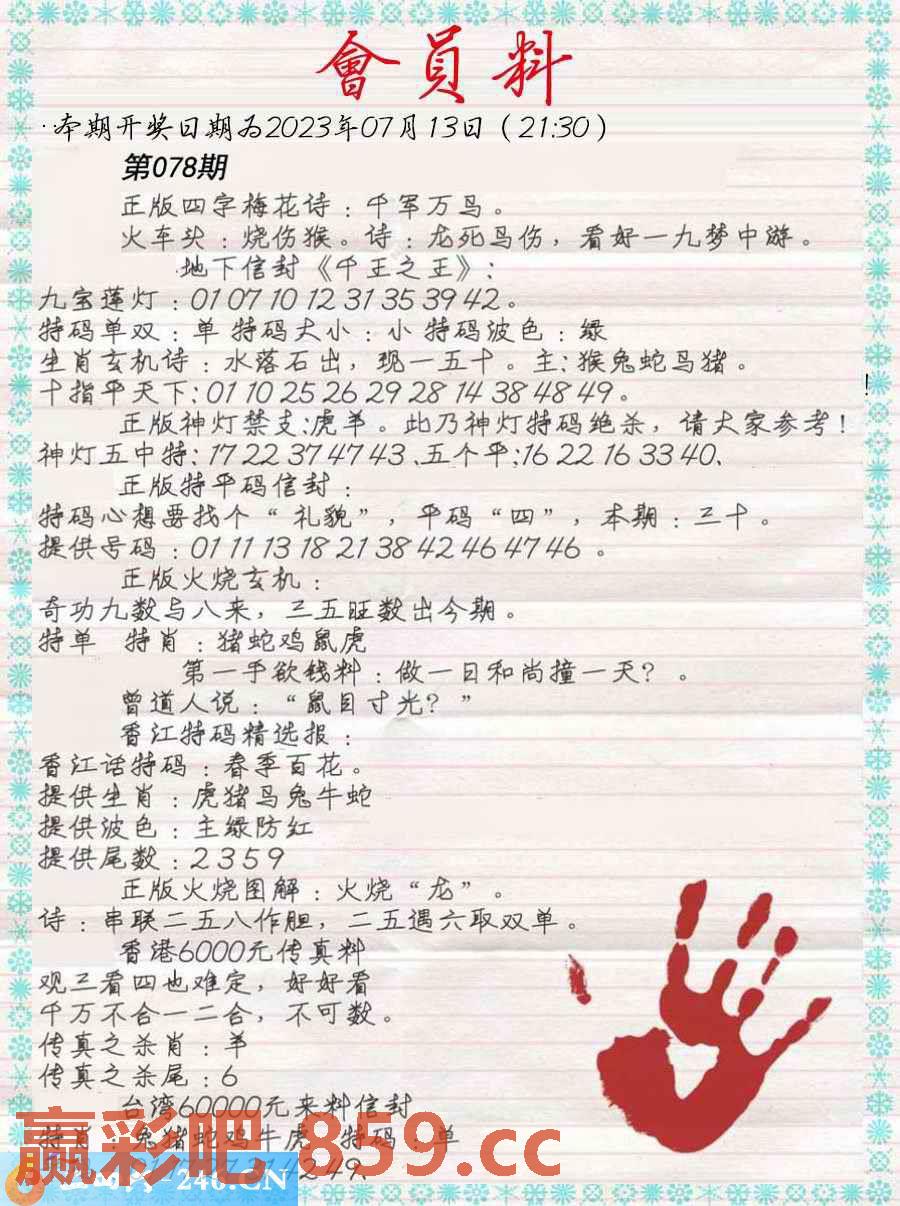 會員料
·本期开奖日期为2023年07月13日（21:30）
第078期
正版四字梅花诗：千军万鸟。
火车头：烧伤猴。诗：龙死鸟伤，看好一九梦中游。
·地下信封《千王之王》：
九宝莲灯：01 07 10 12 31 35 39 42。
特码单双：单 特码大小：小 特码波色：绿
生肖玄机诗：水落石出，现一五十。主：猴兔蛇鸟猪。
十指平天下：01 10 25 26 29 28 14 38 48 49。
!
正版神灯禁支:虎羊。此乃神灯特码绝杀，请大家参考！
神灯五中特：17 22 37 47 43、五个平:16 22 16 33 40、
正版特平码信封：
特码心想要找个“礼貌”，平码“四”，本期：三十。
提供号码：01 11 13 18 21 38 42 46 47 46 。
正版火烧玄机：
奇功九数与八来，三五旺数出今期。
特单 特肖：猪蛇鸡鼠虎
第一手欲钱料：做一日和尚撞一天？。
曾道人说：“鼠目寸光？”
香江特码精选报：
香江话特码：春季百花。
提供生肖：虎猪鸟兔牛蛇
提供波色：主绿防红
提供尾数：2 3 5 9
正版火烧图解：火烧“龙”。
诗：串联二五八作胆，二五遇六取双单。
香港6000元传真料
观三看四也难定，好好看
千万不合一二合，不可数。
传真之杀肖：羊
传真之杀尾：6
台湾60000元来料信封
特肖 兔猪蛇鸡牛虎 特码：单
赢彩吧.859.cc
42 49、
248.CN